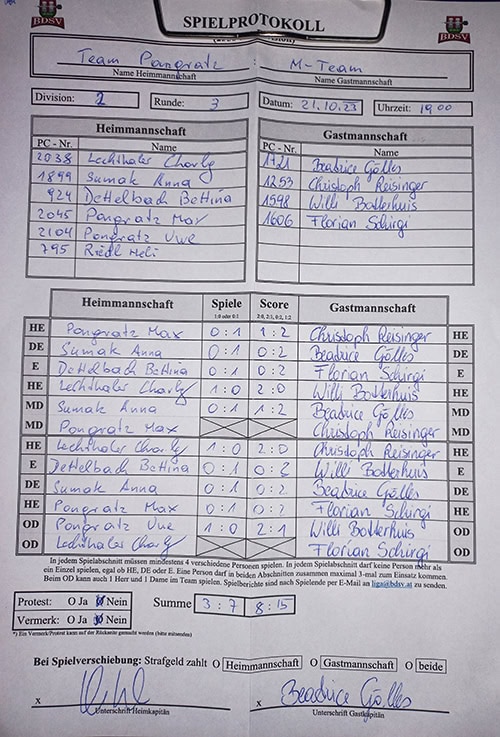 BDSV
SPIELPROTOKOLL
BDSV
Team Pongratz : M-Team
Name Heimmannschaft Name Gastmannschaft
Division: 2 Runde: 3 Datum: 21.10.23 Uhrzeit: 19 00
Heimmannschaft Gastmannschaft
PC - Nr. Name PC - Nr. Name
2038 Lechthaler Charly 1721 Beatrice Gölles
1899 Sumak Anna 1253 Christoph Reisinger
924 Dettelbach Bettina 1598 Willi Botterhuis
2045 Pongratz Max 1606 Florian Schirgi
2104 Pongratz Uwe
795 Riedl Heli
Heimmannschaft Spiele Score Gastmannschaft
1:0 oder 0:1 2:0, 2:1, 0:2, 1:2
HE Pongratz Max 0:1 1:2 Christoph Reisinger HE
DE Sumak Anna 0:1 0:2 Beatrice Gölles DE
E Dettelbach Bettina 0:1 0:2 Florian Schirgi E
HE Lechthaler Charly 1:0 2:0 Willi Botterhuis HE
MD Sumak Anna 0:1 1:2 Beatrice Gölles MD
MD Pongratz Max Christoph Reisinger MD
HE Lechthaler Charly 1:0 2:0 Christoph Reisinger HE
E Dettelbach Bettina 0:1 0:2 Willi Botterhuis E
DE Sumak Anna 0:1 0:2 Beatrice Gölles DE
HE Pongratz Max 0:1 0:2 Florian Schirgi HE
OD Pongratz Uwe 1:0 2:1 Willi Botterhuis OD
OD Lechthaler Charly Florian Schirgi OD
In jedem Spielabschnitt müssen mindestens 4 verschiedene Personen spielen. In jedem Spielabschnitt darf keine Person mehr als
ein Einzel spielen, egal ob HE, DE oder E. Eine Person darf in beiden Abschnitten zusammen maximal 3-mal zum Einsatz kommen.
Beim OD kann auch 1 Herr und 1 Dame im Team spielen. Spielberichte sind nach Spielende per E-Mail an liga@bdsv.at zu senden.
Protest: O Ja O Nein Summe 3:7 8:15
Vermerk: O Ja O Nein
*) Ein Vermerk/Protest kann auf der Rückseite gemacht werden (bitte mitsenden)
Bei Spielverschiebung: Strafgeld zahlt O Heimmannschaft O Gastmannschaft O beide
x x Beatrice Gölles
Unterschrift Heimkapitän Unterschrift Gastkapitän